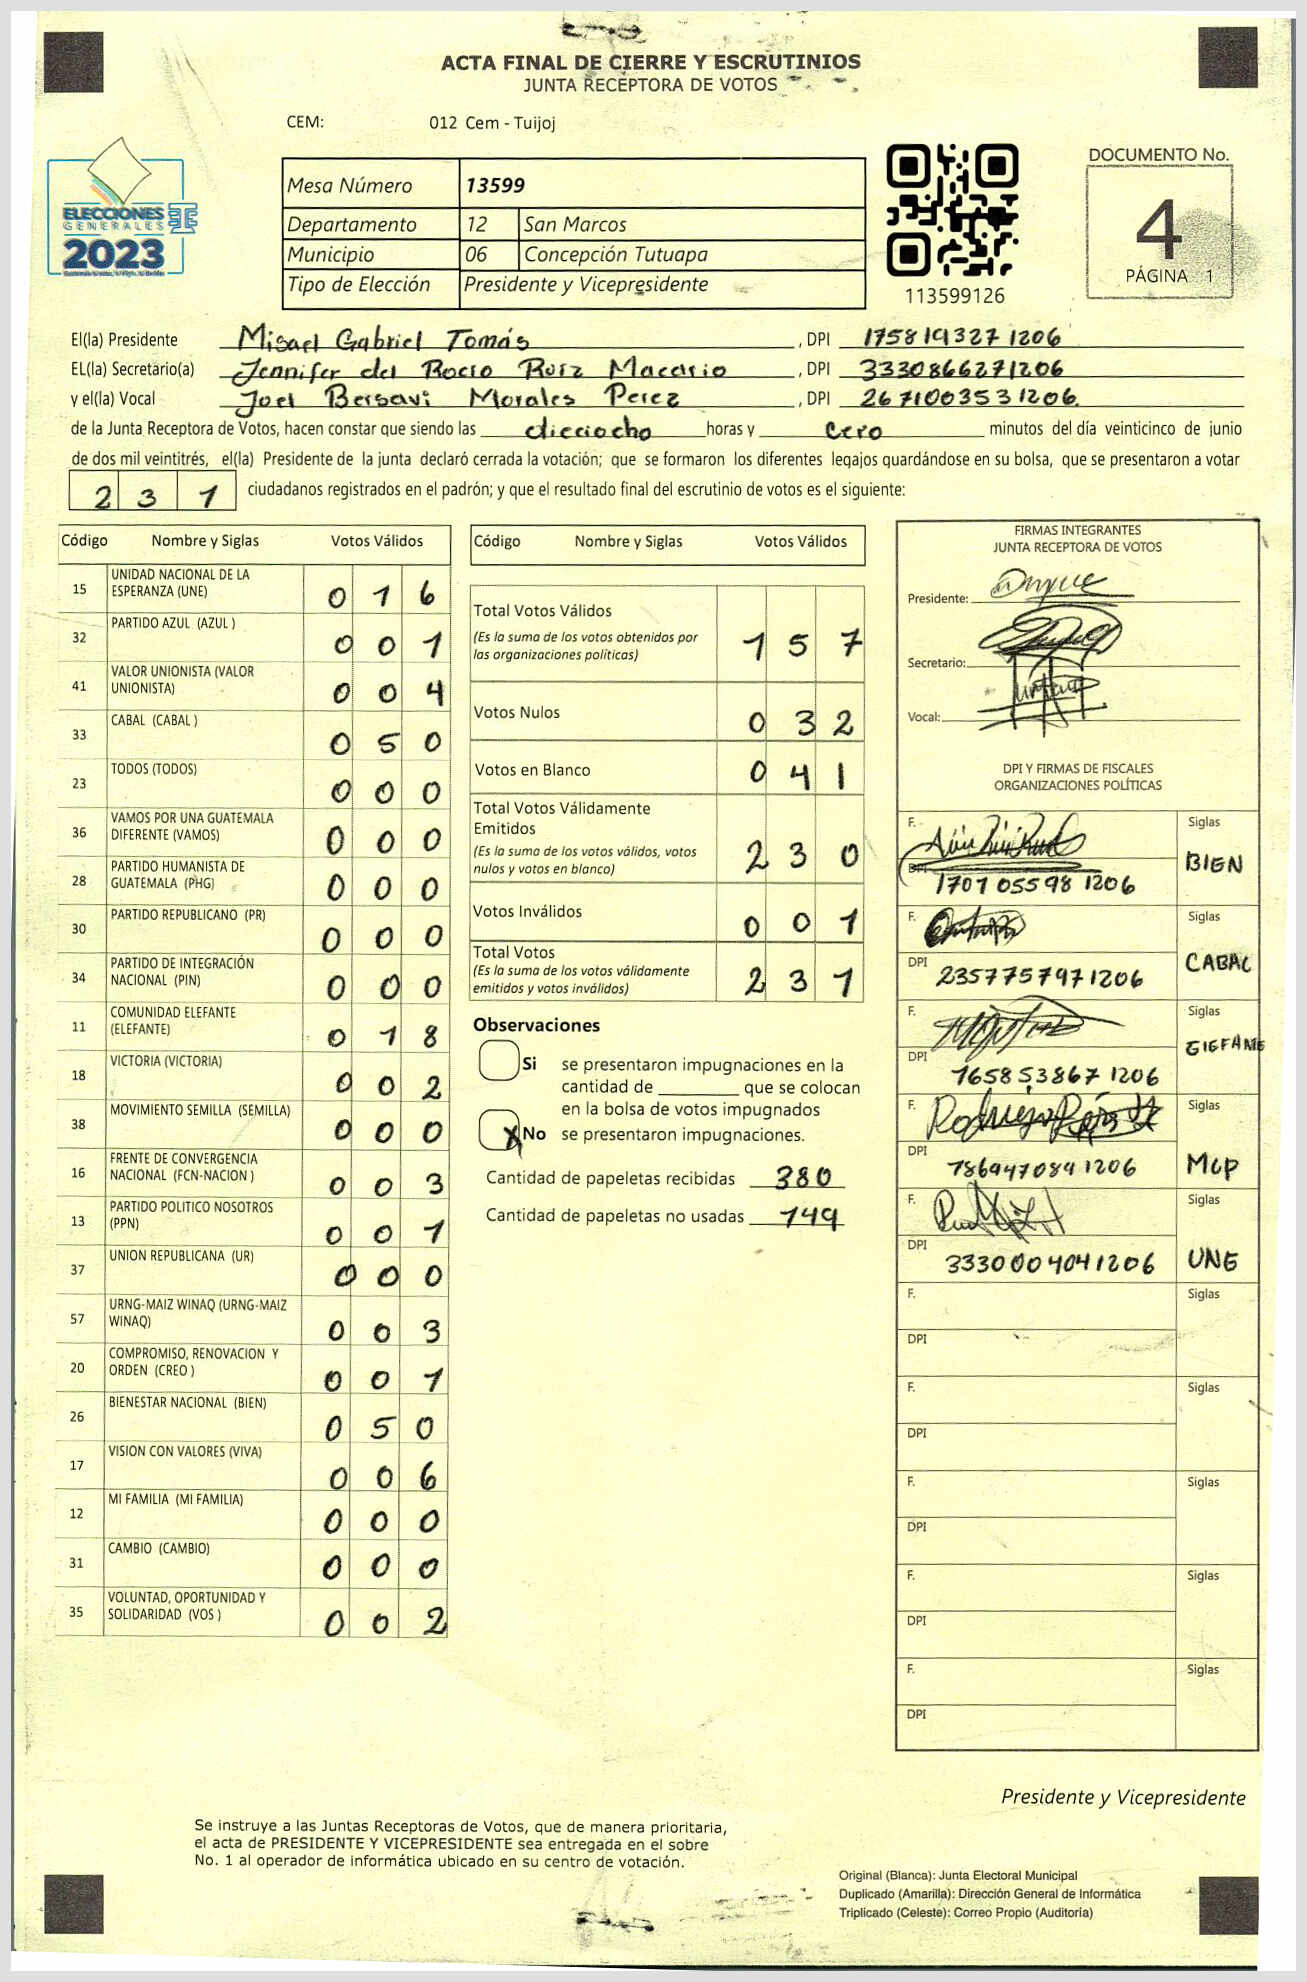 ACTA FINAL DE CIERRE Y ESCRUTINIOS
JUNTA RECEPTORA DE VOTOS
CEM: 012 Cem - Tuijoj
ELECCIONES
GENERALES
2023
Mesa Número 13599
Departamento 12 San Marcos
Municipio 06 Concepción Tutuapa
Tipo de Elección Presidente y Vicepresidente
113599126
DOCUMENTO No.
4
PÁGINA 1
El(la) Presidente Misael Gabriel Tomás, DPI 1758193271206
EL(la) Secretario(a) Jennifer del Rocio Ruiz Macario, DPI 3330866271206
y el(la) Vocal Joel Bersavi Morales Perez, DPI 2671003531206.
de la Junta Receptora de Votos, hacen constar que siendo las dieciocho horas y cero minutos del día veinticinco de junio
de dos mil veintitrés, el(la) Presidente de la junta declaró cerrada la votación; que se formaron los diferentes legajos guardándose en su bolsa, que se presentaron a votar
231 ciudadanos registrados en el padrón; y que el resultado final del escrutinio de votos es el siguiente:
Código Nombre y Siglas Votos Válidos
15 UNIDAD NACIONAL DE LA
ESPERANZA (UNE) 0 1 6
32 PARTIDO AZUL (AZUL ) 0 0 1
41 VALOR UNIONISTA (VALOR
UNIONISTA) 0 0 4
33 CABAL (CABAL ) 0 5 0
23 TODOS (TODOS) 0 0 0
36 VAMOS POR UNA GUATEMALA
DIFERENTE (VAMOS) 0 0 0
28 PARTIDO HUMANISTA DE
GUATEMALA (PHG) 0 0 0
30 PARTIDO REPUBLICANO (PR) 0 0 0
34 PARTIDO DE INTEGRACIÓN
NACIONAL (PIN) 0 0 0
11 COMUNIDAD ELEFANTE
(ELEFANTE) 0 1 8
18 VICTORIA (VICTORIA) 0 0 2
38 MOVIMIENTO SEMILLA (SEMILLA) 0 0 0
16 FRENTE DE CONVERGENCIA
NACIONAL (FCN-NACION ) 0 0 3
13 PARTIDO POLITICO NOSOTROS
(PPN) 0 0 1
37 UNION REPUBLICANA (UR) 0 0 0
57 URNG-MAIZ WINAQ (URNG-MAIZ
WINAQ) 0 0 3
20 COMPROMISO, RENOVACION Y
ORDEN (CREO ) 0 0 1
26 BIENESTAR NACIONAL (BIEN) 0 5 0
17 VISION CON VALORES (VIVA) 0 0 6
12 MI FAMILIA (MI FAMILIA) 0 0 0
31 CAMBIO (CAMBIO) 0 0 0
35 VOLUNTAD, OPORTUNIDAD Y
SOLIDARIDAD (VOS ) 0 0 2
Código Nombre y Siglas Votos Válidos
Total Votos Válidos
(Es la suma de los votos obtenidos por
las organizaciones políticas) 1 5 7
Votos Nulos 0 3 2
Votos en Blanco 0 4 1
Total Votos Válidamente
Emitidos
(Es la suma de los votos válidos, votos
nulos y votos en blanco) 2 3 0
Votos Inválidos 0 0 1
Total Votos
(Es la suma de los votos válidamente
emitidos y votos inválidos) 2 3 1
Observaciones
Si se presentaron impugnaciones en la
cantidad de ________ que se colocan
en la bolsa de votos impugnados
X No se presentaron impugnaciones.
Cantidad de papeletas recibidas 380
Cantidad de papeletas no usadas 149
FIRMAS INTEGRANTES
JUNTA RECEPTORA DE VOTOS
Presidente:
Secretario:
Vocal:
DPI Y FIRMAS DE FISCALES
ORGANIZACIONES POLÍTICAS
F. Siglas
DPI 1701055981206 BIEN
F. Siglas
DPI 2357757971206 CABAL
F. Siglas
DPI 1658538671206 ElEFANE
F. Siglas
DPI 1869470841206 MLP
F. Siglas
DPI 3330004041206 UNE
F. Siglas
DPI
F. Siglas
DPI
F. Siglas
DPI
F. Siglas
DPI
F. Siglas
DPI
Presidente y Vicepresidente
Se instruye a las Juntas Receptoras de Votos, que de manera prioritaria,
el acta de PRESIDENTE Y VICEPRESIDENTE sea entregada en el sobre
No. 1 al operador de informática ubicado en su centro de votación.
Original (Blanca): Junta Electoral Municipal
Duplicado (Amarilla): Dirección General de Informática
Triplicado (Celeste): Correo Propio (Auditoría)